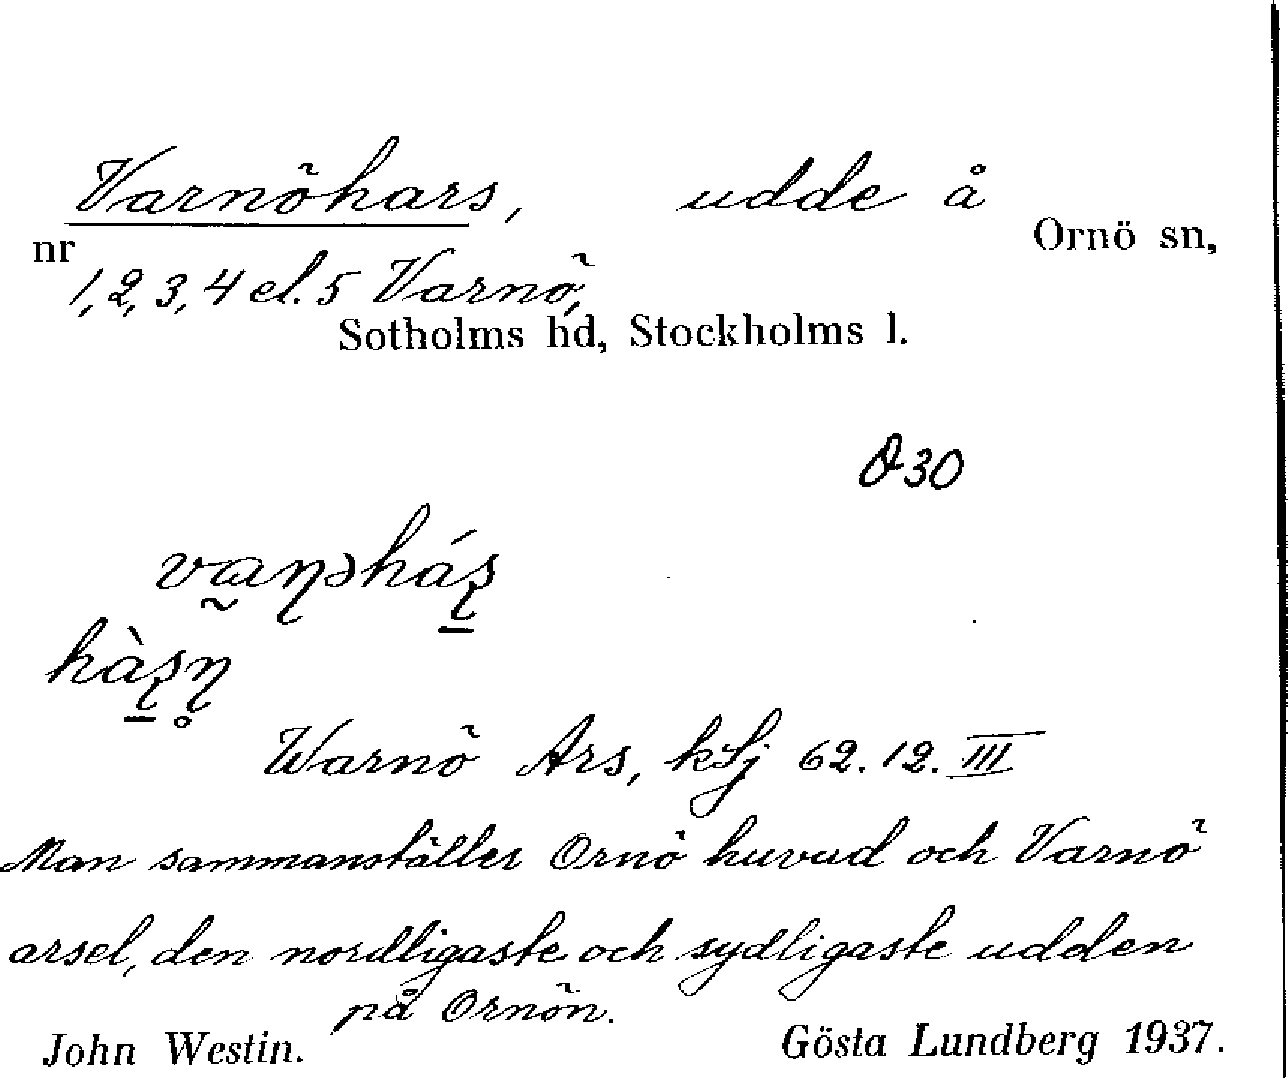 Varnöhars, udde å
nr Ornö sn,
1, 2, 3, 4 el. 5 Varnö,
Sotholms hd, Stockholms l.
Ö 30
Warnö Ars, kSj 62. 12. III
Man sammanställer Ornö huvud och Varnö
arsel, den nordligaste och sydligaste udden
på Ornön.
John Westin. Gösta Lundberg 1937.